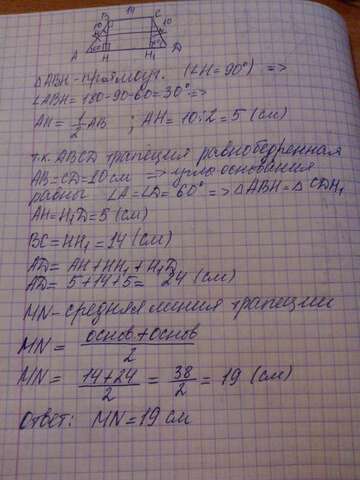 14
B C
10 10
60°
A H H₁ D
△ABH - прямоуг. (∠H = 90°) =>
∠ABH = 180-90-60=30° =>
AH = 1/2 AB ; AH = 10:2 = 5 (см)
т.к. ABCD трапеция равнобедренная
AB = CD = 10см => углы основания
равны ∠A = ∠D = 60° => △ABH = △CDH₁
AH = H₁D = 5 (см)
BC = HH₁ = 14 (см)
AD = AH + HH₁ + H₁D
AD = 5 + 14 + 5 = 24 (см)
MN - средняя линия трапеции
MN = основ + основ / 2
MN = 14+24 / 2 = 38 / 2 = 19 (см)
Ответ: MN = 19 см